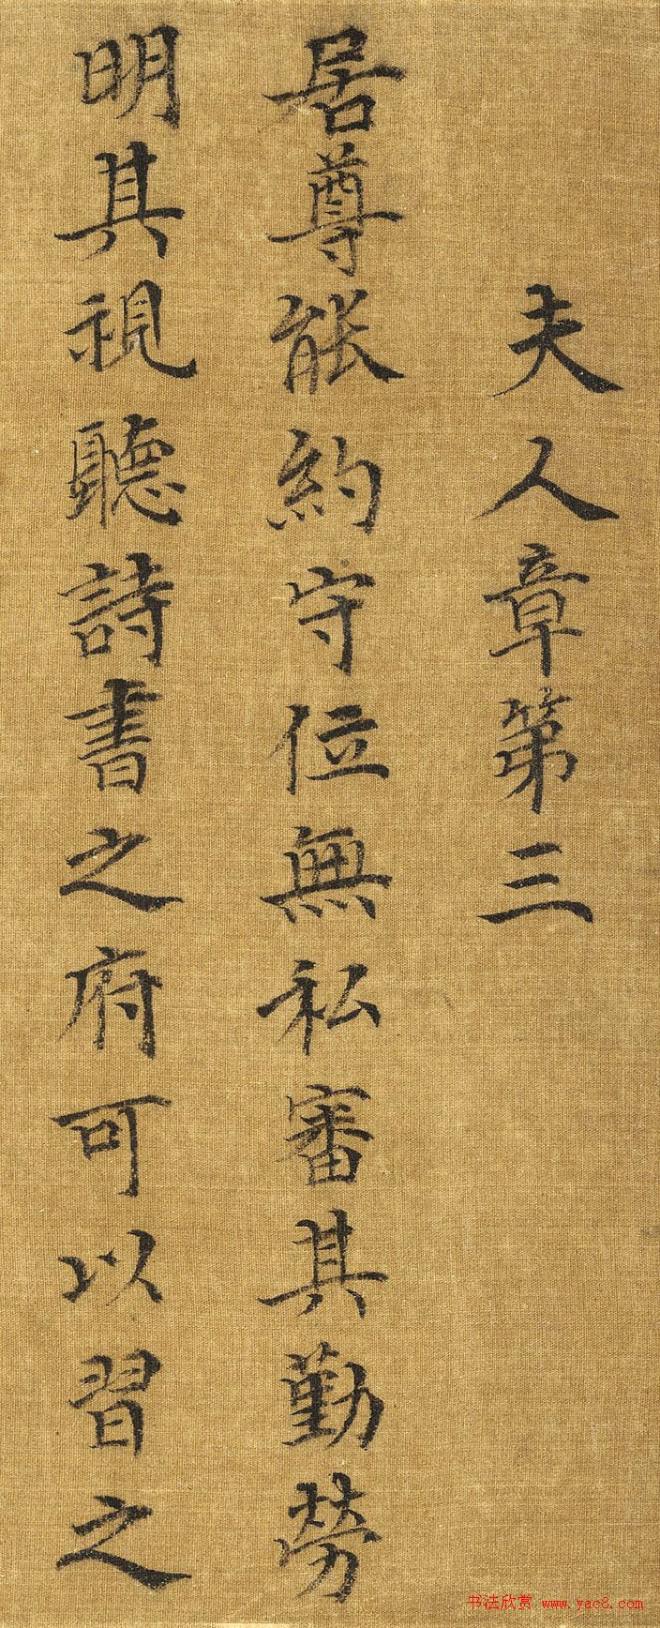 夫人章第三
居尊能約守位無私審其勤勞
明其視聽詩書之府可以習之
书法欣赏 www.yac8.com